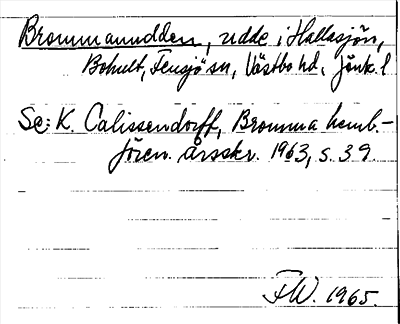 Brommanudden, udde i Hallasjön,
Bohult, Femsjö sn, Västbo hd, Jönk. l
Se: K. Calissendorff, Bromma hemb.-
fören. årsskr. 1963, s. 39.
FW. 1965.